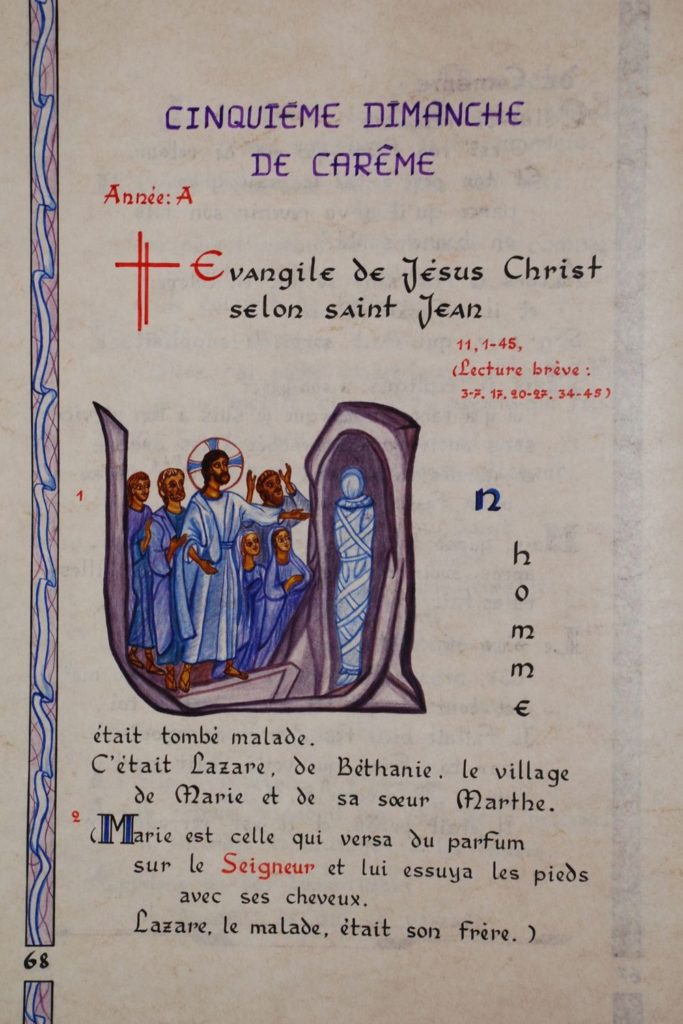 CINQUIÉME DIMANCHE
DE CARÊME
Année: A
Evangile de Jésus Christ
selon saint Jean
11, 1-45,
(Lecture brève :
3-7. 17. 20-27. 34-45)
1
Un
homme
était tombé malade.
C'était Lazare, de Béthanie, le village
de Marie et de sa sœur Marthe.
2
(Marie est celle qui versa du parfum
sur le Seigneur et lui essuya les pieds
avec ses cheveux.
Lazare, le malade, était son frère.)
68